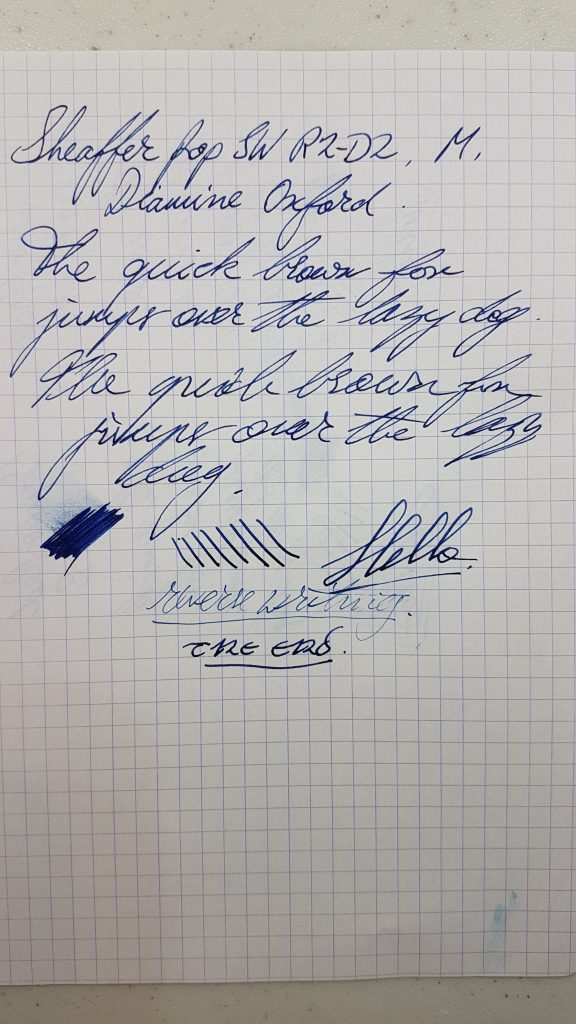 Sheaffer pop SW R2-D2, M.
Diamine Oxford.
The quick brown fox
jumps over the lazy dog.
The quick brown fox
jumps over the lazy
dog.
Hello.
reverse writing.
THE END.